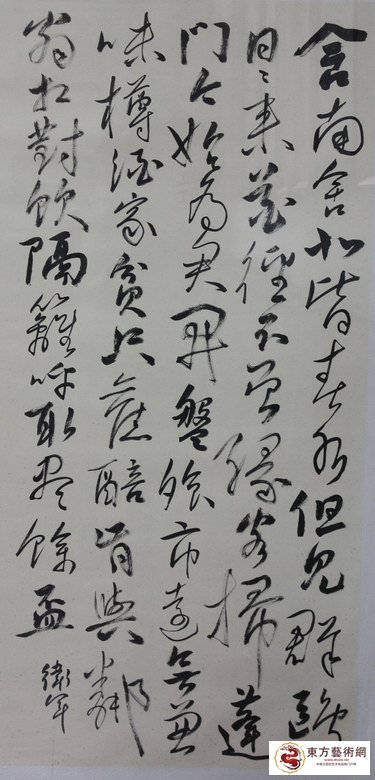 舍南舍北皆春水但見群鷗
日々来花徑不曾緣客掃蓬
門今始為君開盤飧市遠無兼
味樽酒家貧只舊醅肯與鄰
翁相對飲隔籬呼取盡餘盃
衛軍
東方藝術網